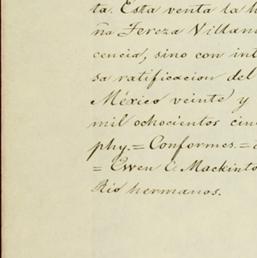 ta. Esta venta la h
ña Tereza Villanu
cencia, sino con int
sa ratificacion del
México veinte y
mil ochocientos cin
phy.= Conformes.=
= Ewen C. Mackinto
Rio hermanos.